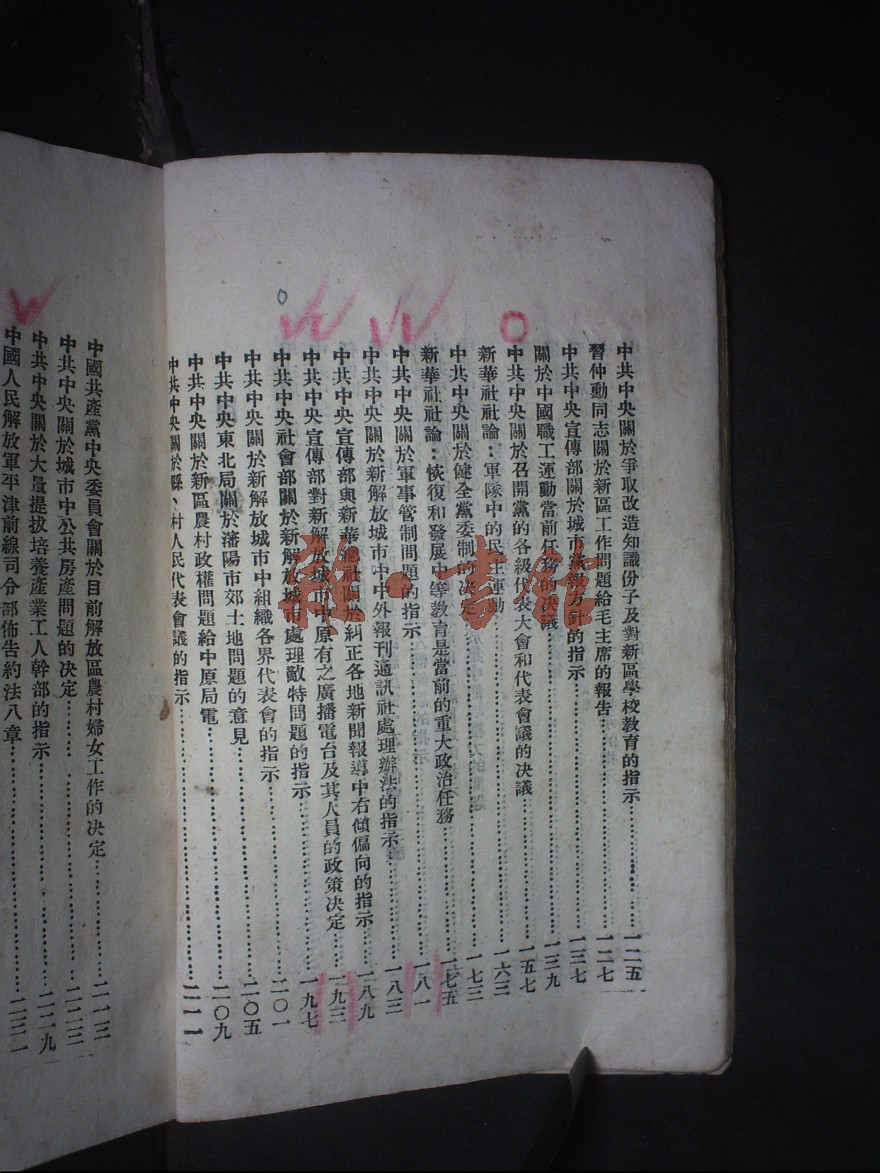 中共中央關於爭取改造知識份子及對新區學校教育的指示……一二五
習仲勳同志關於新區工作問題給毛主席的報告……一二七
中共中央宣傳部關於城市黨報方針的指示……一三七
關於中國職工運動當前任務的決議……一三九
中共中央關於召開黨的各級代表大會和代表會議的決議……一五七
新華社社論：軍隊中的民主運動……一六三
中共中央關於健全黨委制的決定……一七三
新華社社論：恢復和發展中等教育是當前的重大政治任務……一七五
中共中央關於軍事管制問題的指示……一八一
中共中央關於新解放城市中中外報刊通訊社處理辦法的指示……一八三
中共中央宣傳部與新華總社關於糾正各地新聞報導中右傾偏向的指示……一八九
中共中央宣傳部對新解放城市中原有之廣播電台及其人員的政策决定……一九三
中共中央社會部關於新解放城市處理敵特問題的指示……一九七
中共中央關於新解放城市中組織各界代表會的指示……二〇一
中共中央東北局關於瀋陽市郊土地問題的意見……二〇五
中共中央關於新區農村政權問題給中原局電……二〇九
中共中央關於縣、村人民代表會議的指示……二一一
中國共產黨中央委員會關於目前解放區農村婦女工作的决定……二一三
中共中央關於城市中公共房產問題的决定……二二三
中共中央關於大量提拔培養產業工人幹部的指示……二二九
中國人民解放軍平津前線司令部佈告約法八章……二三一
雜·書館